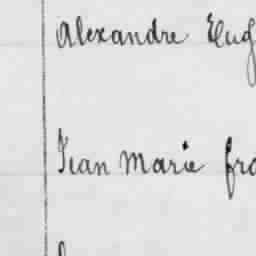 Alexandre Eug
Jean Marie fra